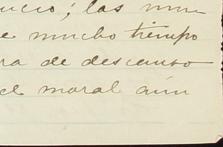 ucio; las mu
e mucho tiempo
ra de descanso
el moral aún